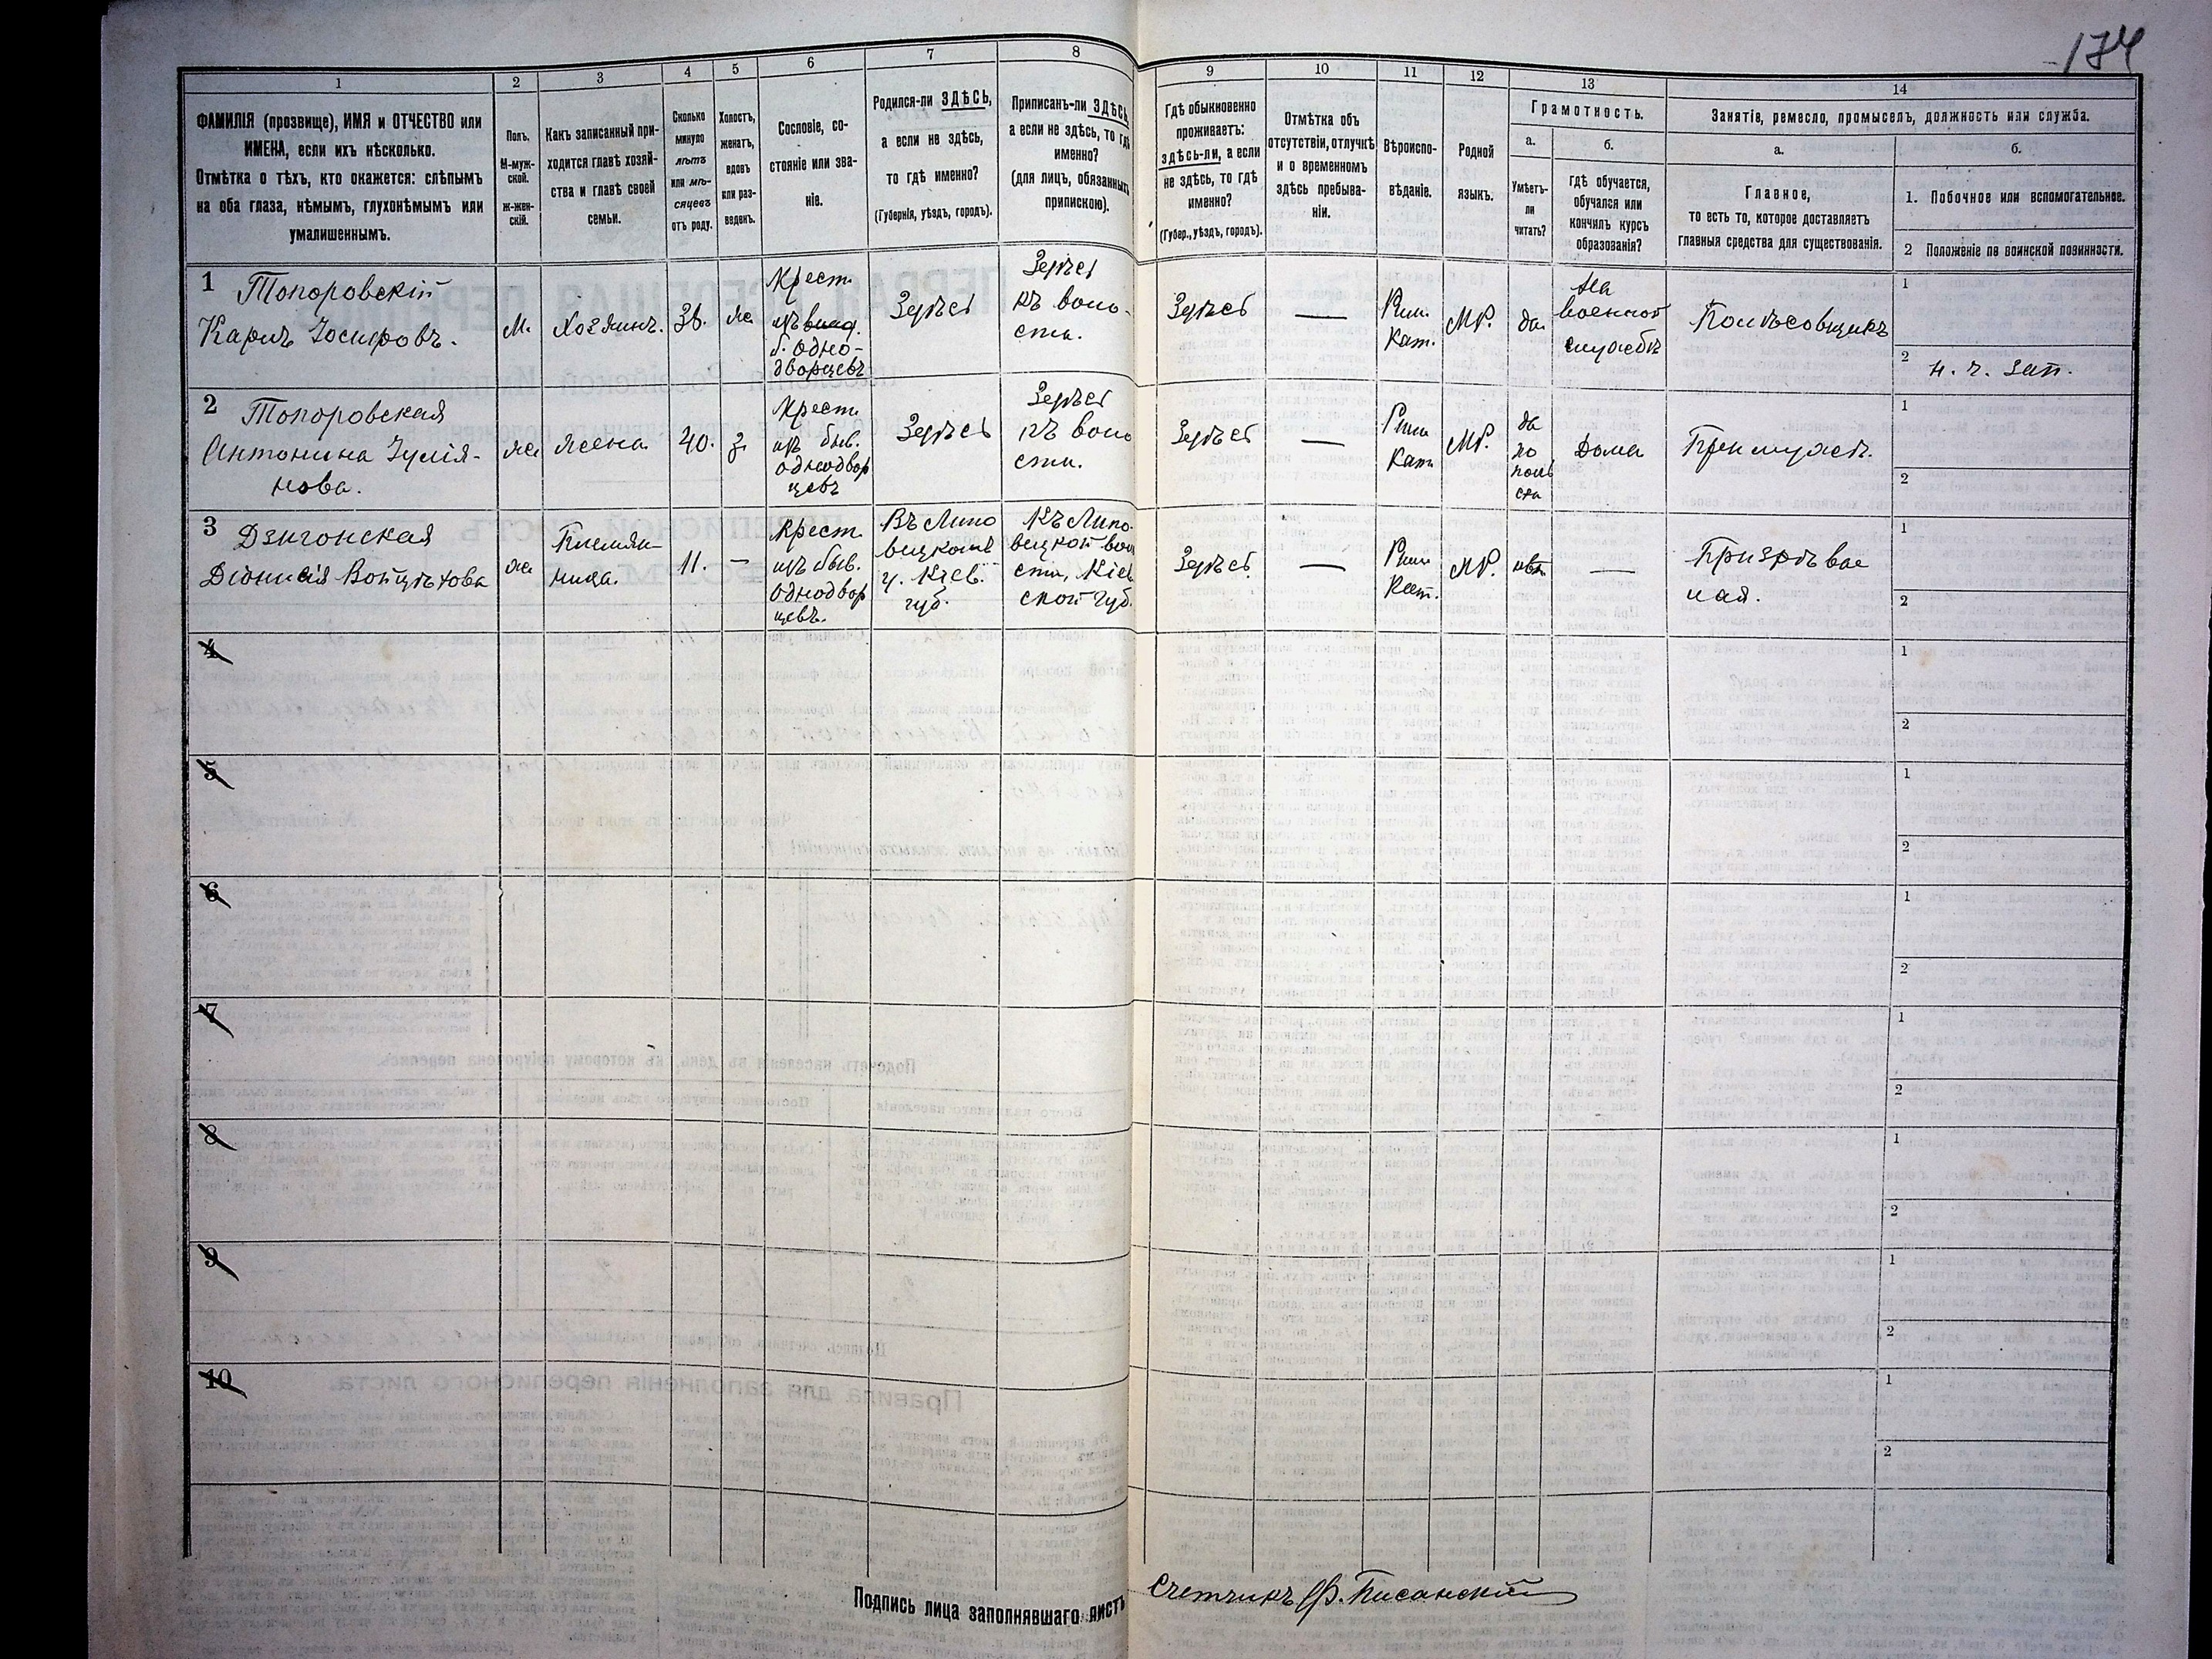 174
1
2
3
4
5
6
7
8
9
10
11
12
13
14
ФАМИЛІЯ (прозвище), ИМЯ и ОТЧЕСТВО или
ИМЕНА, если ихъ нѣсколько.
Отмѣтка о тѣхъ, кто окажется: слѣпымъ
на оба глаза, нѣмымъ, глухонѣмымъ или
умалишеннымъ.
Полъ.
М-муж-
ской.
Ж-жен-
скій.
Какъ записанный при-
ходится главѣ хозяй-
ства и главѣ своей
семьи.
Сколько
минуло
лѣтъ
или мѣ-
сяцевъ
отъ роду.
Холостъ,
женатъ,
вдовъ
или раз-
веденъ.
Сословіе, со-
стояніе или зва-
ніе.
Родился-ли ЗДѢСЬ,
а если не здѣсь,
то гдѣ именно?
(Губернія, уѣздъ, городъ).
Приписанъ-ли ЗДѢСЬ,
а если не здѣсь, то гдѣ
именно?
(для лицъ, обязанныхъ
припискою).
Гдѣ обыкновенно
проживаетъ:
здѣсь-ли, а если
не здѣсь, то гдѣ
именно?
(Губер., уѣздъ, городъ).
Отмѣтка объ
отсутствіи, отлучкѣ
и о временномъ
здѣсь пребыва-
ніи.
Вѣроиспо-
вѣданіе.
Родной
языкъ.
Грамотность.
а.
Умѣетъ-
ли
читать?
б.
Гдѣ обучается,
обучался или
кончилъ курсъ
образованія?
Занятіе, ремесло, промыселъ, должность или служба.
а.
Главное,
то есть то, которое доставляетъ
главныя средства для существованія.
б.
1. Побочное или вспомогательное.
2 Положеніе по воинской повинности.
1
Топоровскій
Карлъ Іосифовъ.
М.
Хозяинъ.
38.
ж.
Крест.
изъ
б. одно-
дворцевъ
Здѣсь
Здѣсь
къ воло-
сти.
Здѣсь
—
Рим.
Кат.
МР.
да.
На
военной
службѣ
Полѣсовщикъ
1
2
н. ч. зап.
2
Топоровская
Антонина Іулія-
нова.
ж.
жена.
40.
з.
Крест.
изъ быв.
однодвор
цевъ
Здѣсь
Здѣсь
къ воло
сти.
Здѣсь
—
Рим.
Кат.
МР.
да
по
поль
ски
Дома
При мужѣ.
1
2
3
Дзигонская
Діонисія Войцѣхова
ж.
Племян-
ница.
11.
—
Крест.
изъ быв.
однодвор
цевъ.
Въ Липо
вецкомъ
у. Кіев.
губ.
Къ Липо-
вецкой вол
сти, Кіев
ской губ.
Здѣсь
—
Рим.
Кат.
МР.
нѣт
—
Призрѣвае
мая.
1
2
4
1
2
5
1
2
6
1
2
7
1
2
8
1
2
9
1
2
10
1
2
Подпись лица заполнявшаго листъ
Счетчикъ Ф. Писанскій